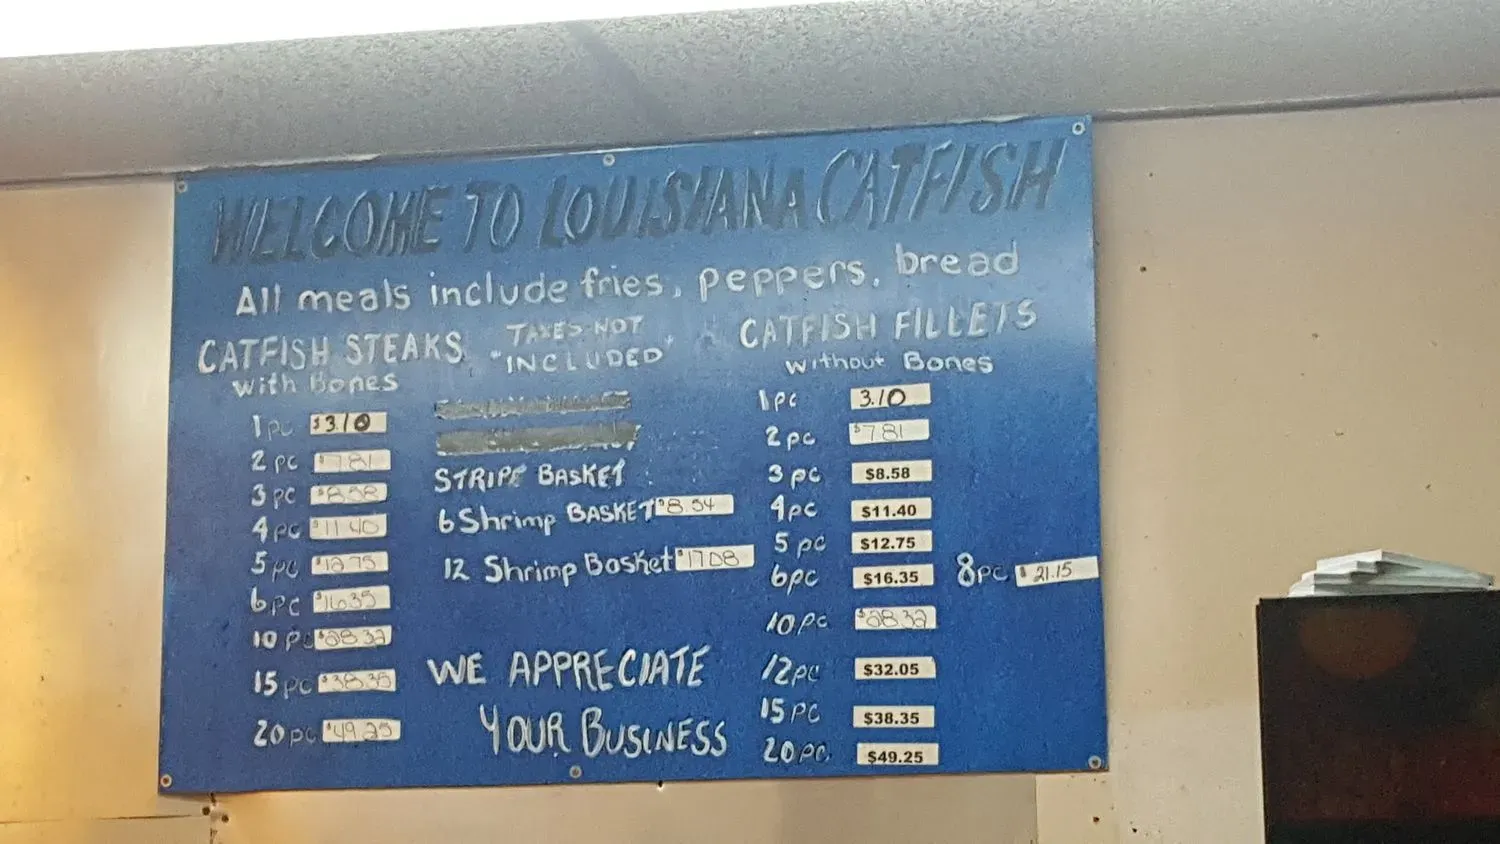 WELCOME TO LOUISIANA CATFISH
All meals include fries, peppers, bread
CATFISH STEAKS
with Bones
1 pc $3.10
2 pc $7.81
3 pc $8.58
4 pc $11.40
5 pc $12.75
6 pc $16.35
10 pc $28.32
15 pc $38.35
20 pc $49.25
TAXES NOT
"INCLUDED"
STRIPE BASKET
6 Shrimp BASKET $8.54
12 Shrimp Basket $17.08
WE APPRECIATE
YOUR BUSINESS
CATFISH FILLETS
without Bones
1 pc 3.10
2 pc $7.81
3 pc $8.58
4 pc $11.40
5 pc $12.75
6 pc $16.35 8 pc $21.15
10 pc $28.32
12 pc $32.05
15 pc $38.35
20 pc $49.25